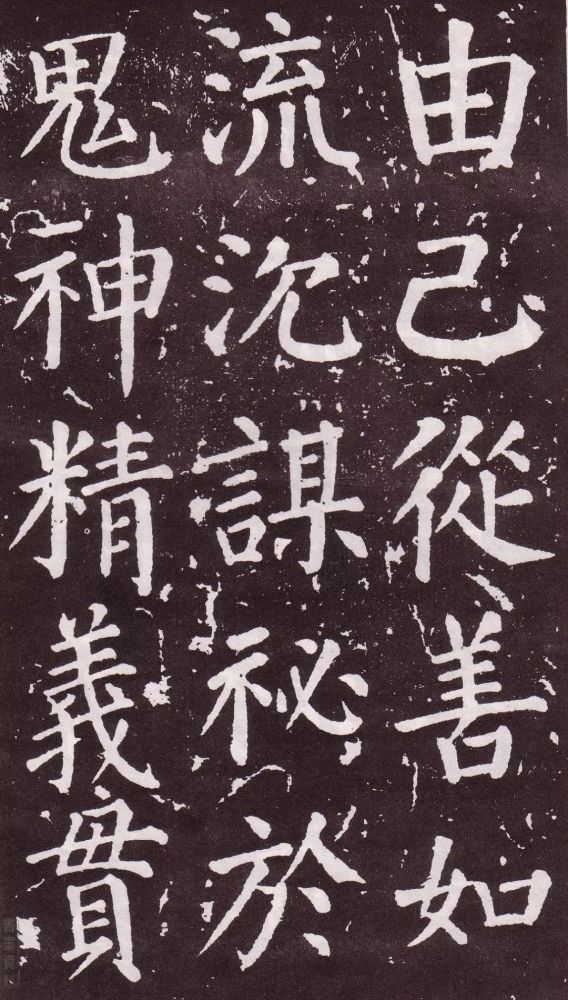 由己從善如
流沉謀祕於
鬼神精義貫